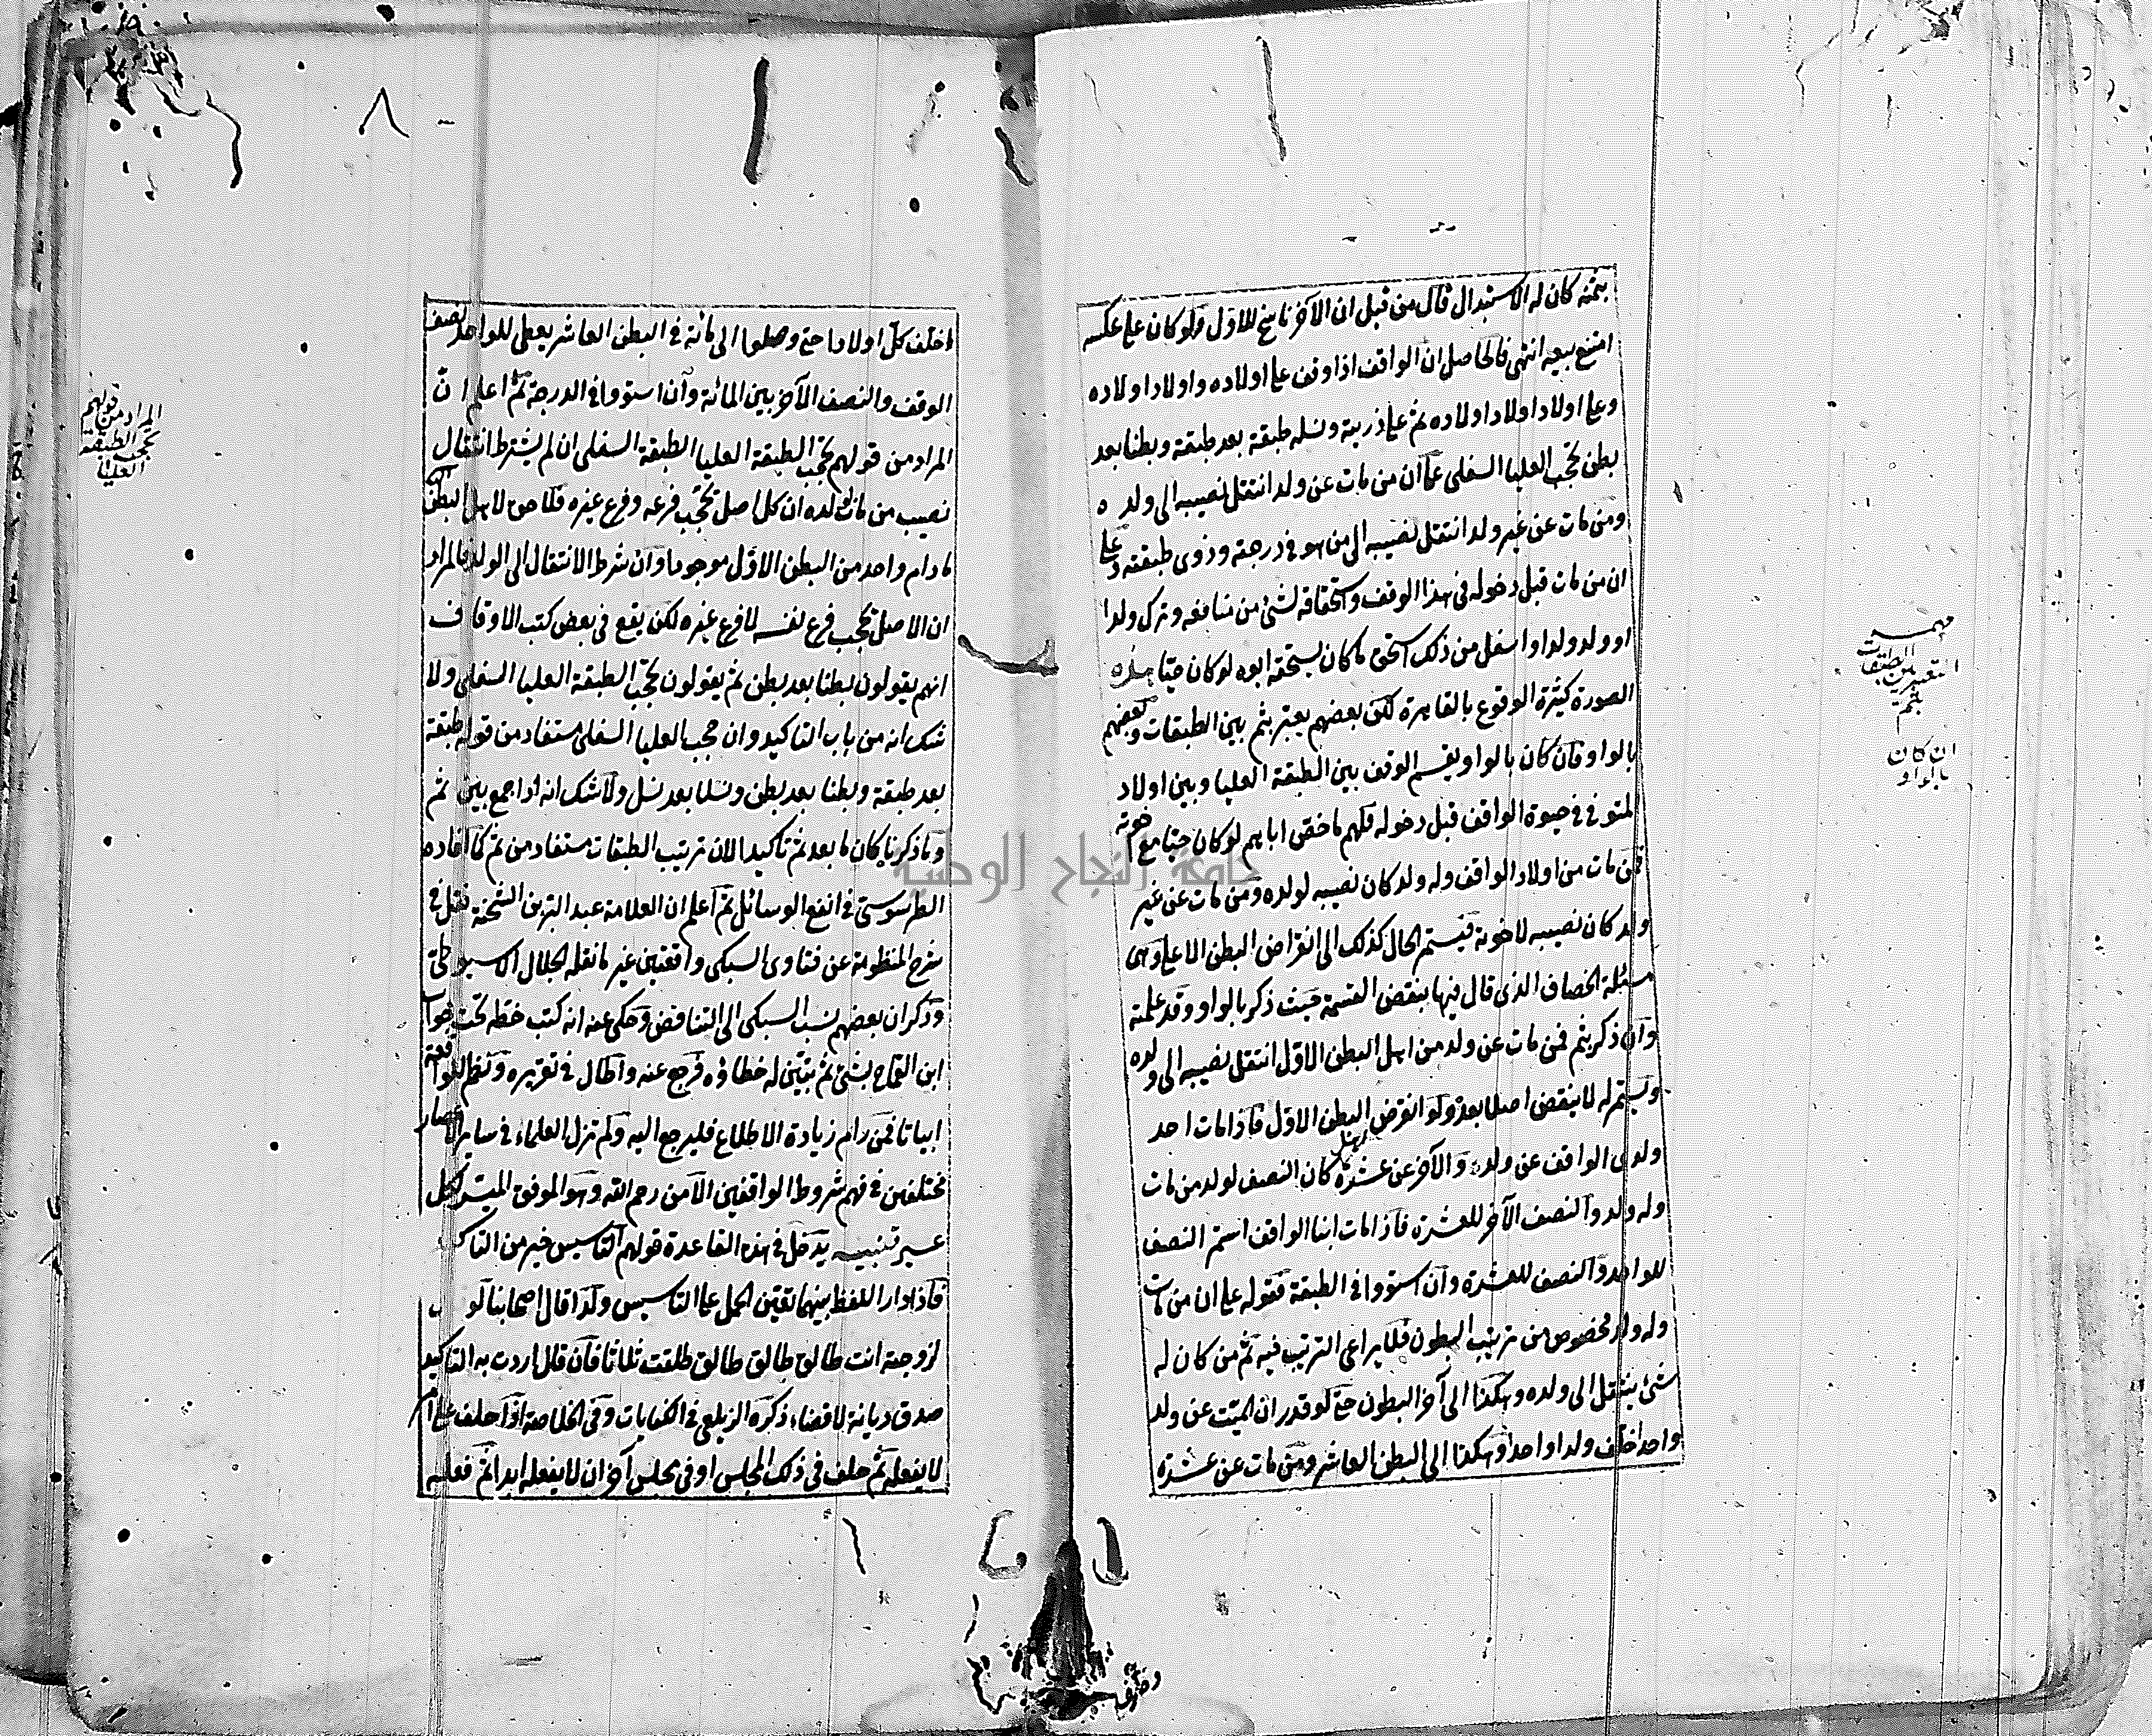 بثمنه كان له الاستبدال قال من قبل ان الآخر ناسخ للاول ولو كان على عكسه
امتنع بيعه انتهى فالحاصل ان الواقف اذا وقف على اولاده واولاد اولاده
وعلى اولاد اولاد اولاده ثم على ذريته ونسله طبقة بعد طبقة وبطنا بعد
بطن تحجب العليا السفلى على ان من مات عن ولد انتقل نصيبه الى ولده
ومن مات عن غير ولد انتقل نصيبه الى من هو في درجته وذوى طبقته وعلى
ان من مات قبل دخوله في هذا الوقف واستحقاقه لشئ من منافعه وترك ولدا
او ولد ولد او اسفل من ذلك استحق ما كان يستحقه ابوه لو كان حيا هذه
الصورة كثيرة الوقوع بالقاهرة لكن بعضهم يعبر بثم بين الطبقات وبعضهم
بالواو فان كان بالواو يقسم الوقف بين الطبقة العليا وبين اولاد
المتوفى في حيوة الواقف قبل دخوله فلهم ما خص اباهم لو كان حيا مع اخوته
فمن مات من اولاد الواقف وله ولد كان نصيبه لولده ومن مات عن غير
ولد كان نصيبه لاخوته فيستمر الحال كذلك الى انقراض البطن الاعلى وهى
مسئلة الخصاف الذى قال فيها بنقض القسمة حيث ذكر بالواو وقد علمته
وان ذكر بثم فمن مات عن ولد من اهل البطن الاول انتقل نصيبه الى ولده
ويستمر له لا ينقض اصلا بعده ولو انقرض البطن الاول فاذا مات احد
ولدى الواقف عن ولده والآخر عن عشرة كان النصف لولد من مات
وله ولد والنصف الآخر للعشرة فاذا مات ابنا الواقف استمر النصف
للواحد والنصف للعشرة وان استووا في الطبقة فقوله على ان من مات
وله ولد مخصوص من ترتيب البطون فلا يراعى الترتيب فيه ثم من كان له
شئ ينتقل الى ولده وهكذا الى آخر البطون حتى لو قدر ان الميت عن ولد
واحد خلف ولدا واحدا وهكذا الى البطن العاشر ومن مات عن عشرة
مهمه
التعبير بين الطبقات
بثم
ان كان
بالواو
خلف كل اولادا حتى وصلوا الى مائة في البطن العاشر يعطى للواحد نصف
الوقف والنصف الآخر بين المائة وان استووا في الدرجة ثم اعلم ان
المراد من قولهم تحجب الطبقة العليا الطبقة السفلى ان لم يشترط انتقال
نصيب من مات لولده ان كل اصل تحجب فرعه وفرع غيره فلا حق لاهل البطن
ما دام واحد من البطن الاول موجودا وان شرط الانتقال الى الولد فالمراد
ان الاصل تحجب فرع نفسه لا فرع غيره لكن يقع في بعض كتب الاوقاف
انهم يقولون بطنا بعد بطن ثم يقولون تحجب الطبقة العليا السفلى ولا
شك انه من باب التاكيد وان حجب العليا السفلى مستفاد من قوله طبقة
بعد طبقة وبطنا بعد بطن ونسلا بعد نسل ولا شك انه اذا جمع بين ثم
وما ذكرناه كان ما بعد ثم تاكيدا لان ترتيب الطبقات مستفاد من ثم كما افاده
الطرسوسى في انفع الوسائل ثم اعلم ان العلامة عبد البر بن الشحنة نقل في
شرح المنظومة عن فتاوى السبكى واقعتين غير ما نقله الجلال الاسيوطى
وذكر ان بعضهم نسب السبكى الى التناقض وحكى عنه انه كتب خطه تحت جواب
ابن القماح بشئ ثم تبين له خطاؤه فرجع عنه واطال في تقريره ونظم للواقعة
ابياتا فمن رام زيادة الاطلاع فليرجع اليه ولم تزل العلماء في سائر الاعصار
مختلفين في فهم شروط الواقفين الا من رحم الله وهو الموفق الميسر لكل
عسير تنبيه يدخل في هذه القاعدة قولهم التاسيس خير من التاكيد
فاذا دار اللفظ بينهما تعين الحمل على التاسيس ولذا قال اصحابنا لو
لزوجته انت طالق طالق طالق طلقت ثلاثا فان قال اردت به التاكيد
صدق ديانة لا قضاء ذكره الزيلعى في الكنايات وفى الخلاصة اذا حلف على امر
لا يفعله ثم حلف في ذلك المجلس او في مجلس آخر ان لا يفعله ابدا ثم فعله
المراد من قولهم
تحجب الطبقة
العليا
جامعة النجاح الوطنية